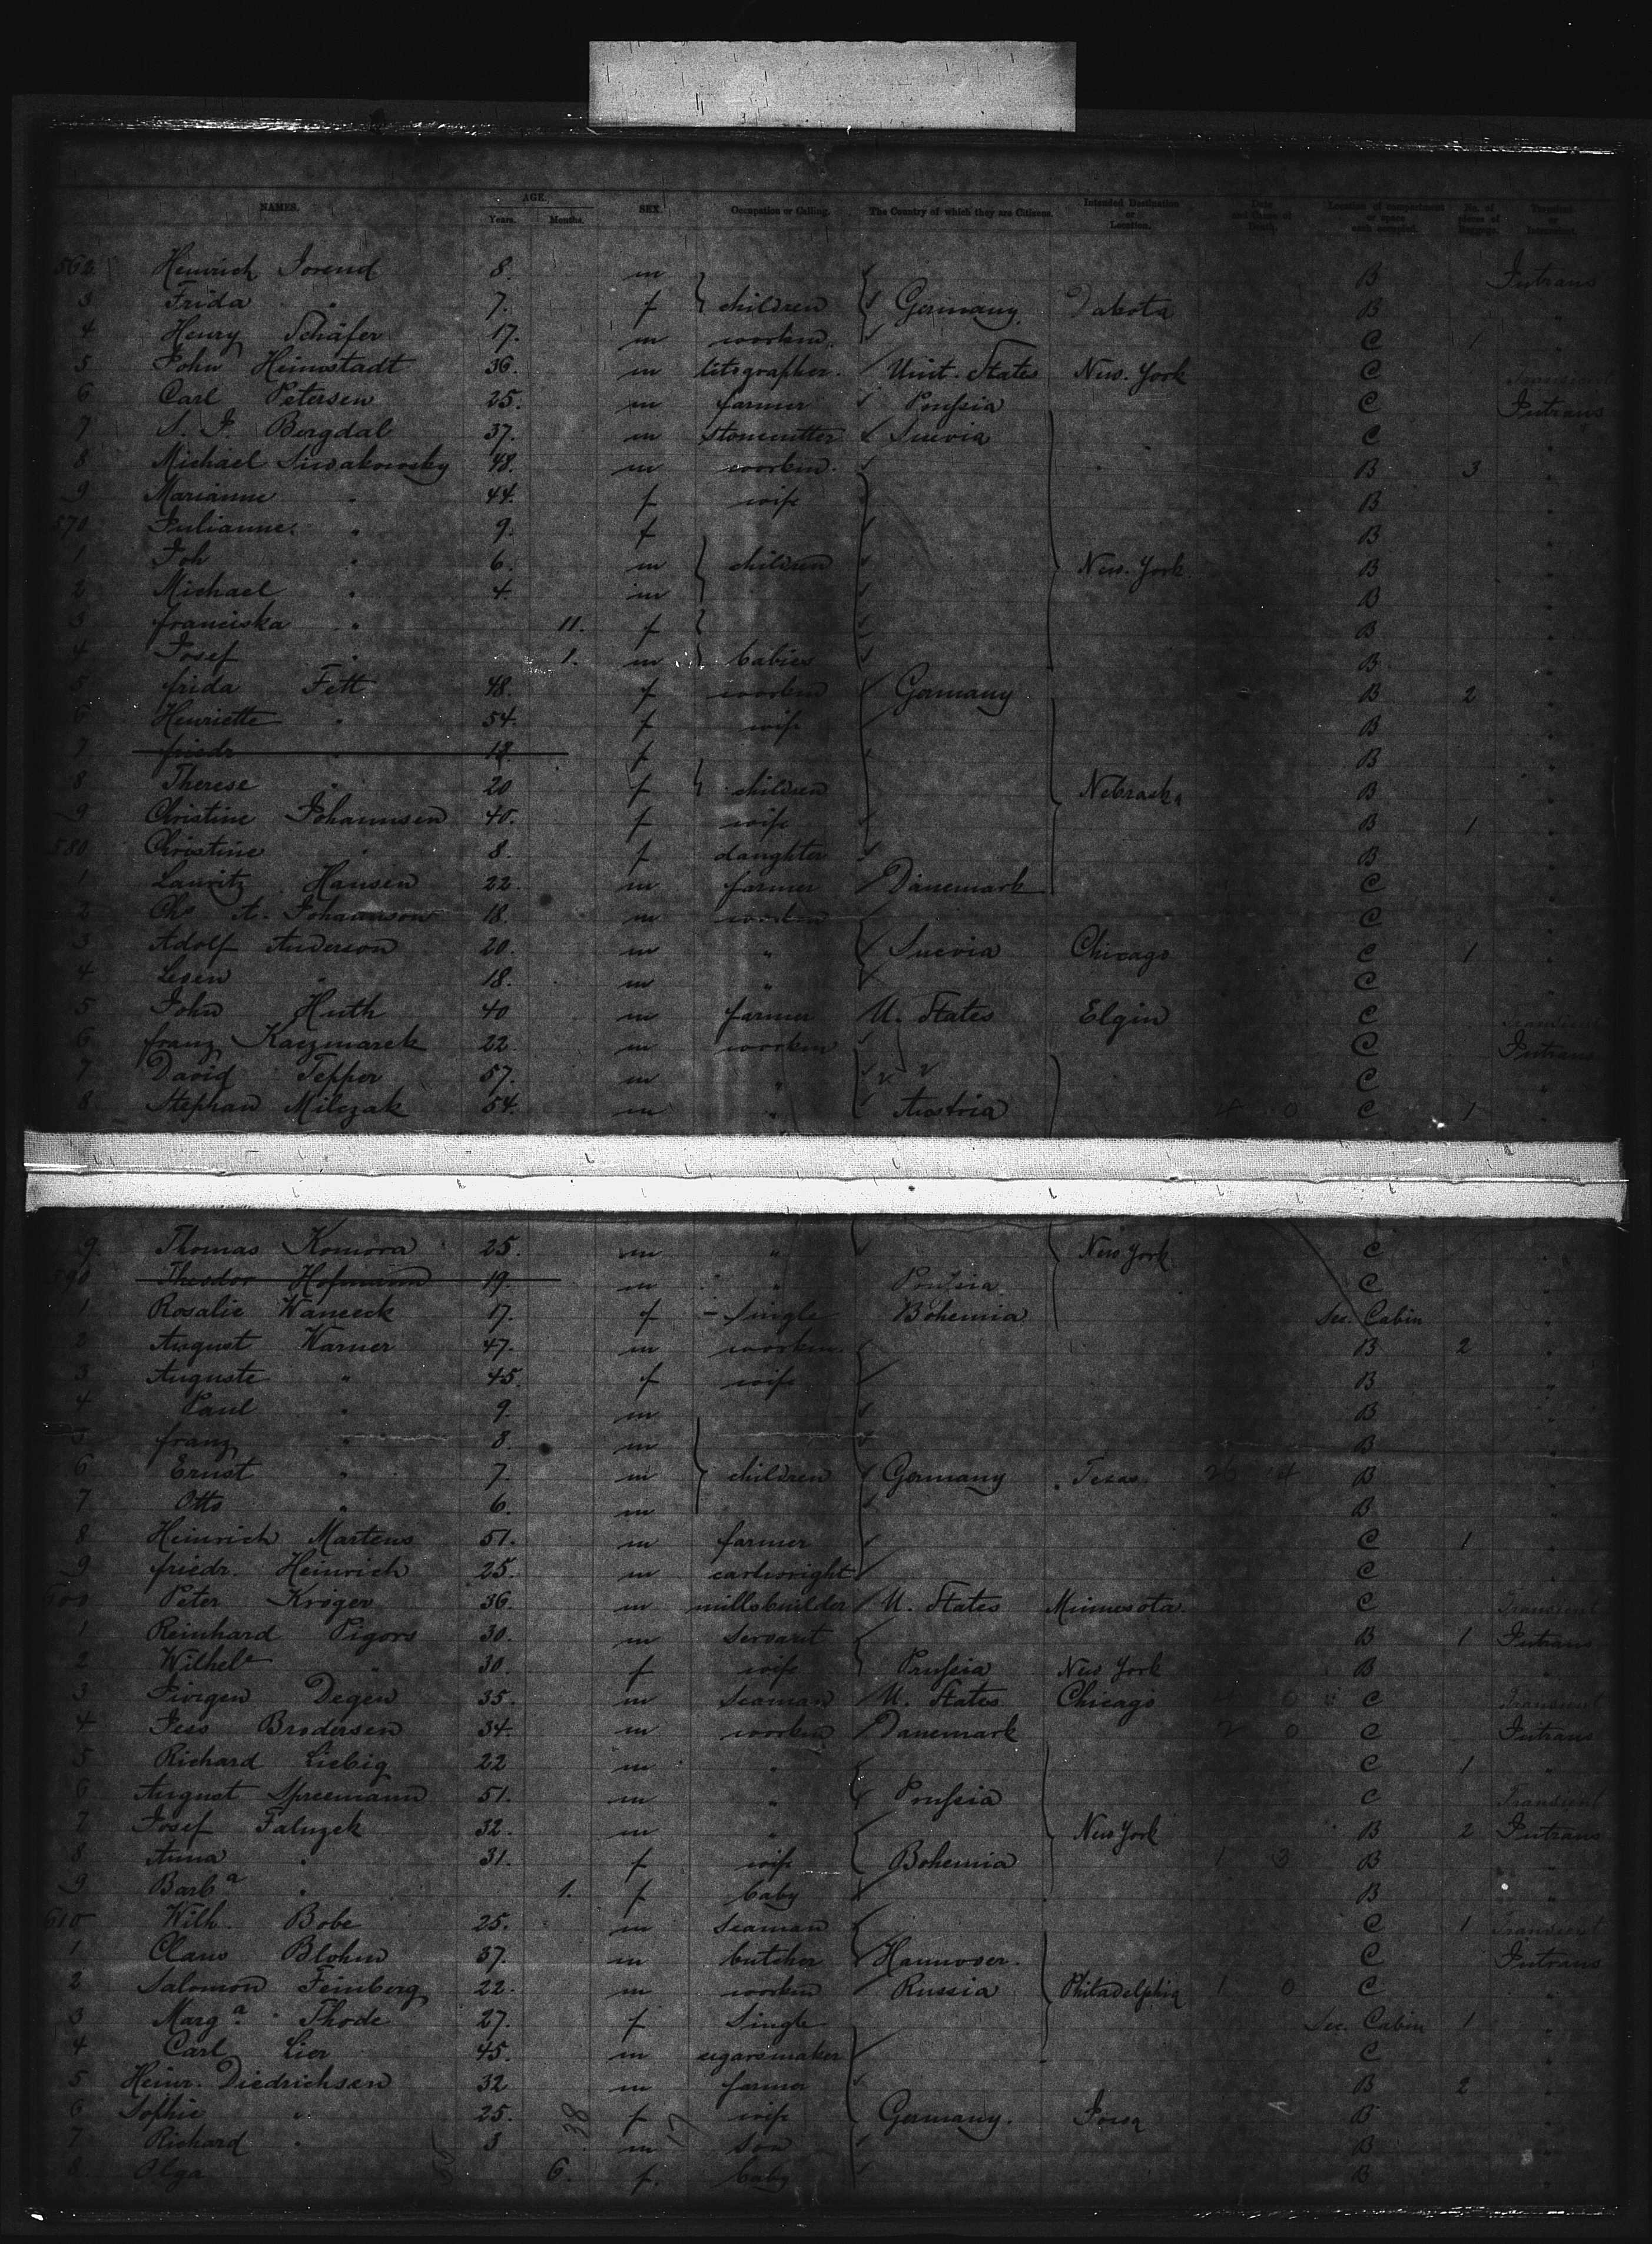 NAMES. AGE. Years. Months. SEX. Occupation or Calling. The Country of which they are Citizens. Intended Destination or Location. Date and Cause of Death. Location of compartment or space each occupied. No. of pieces of Baggage. Transient or
562 Heinrich 8. m B Intrans
3 Frida " 7. f children Germany Dakota B "
4 Henry Schäfer 17. m workm. C 1 "
5 John Heimstadt 36. m litographer. Unit. States New. York C Transient
6 Carl Petersen 25. m farmer Prussia C Intrans
7 Bergdal 37. m stonecutter Suevia C "
8 Michael 48. m workm. B 3 "
9 Marianne " 44. f wife B "
570 Julianne " 9. f B "
1 Joh " 6. m children New. York B "
2 Michael " 4. m B "
3 franciska " 11. f B "
4 Josef " 1. m babies B "
5 frida Fett 48. f workm Germany B 2 "
6 Henriette " 54. f wife B "
7 friedr " 18. f B "
8 Therese " 20 f children Nebraska B "
9 Christine Johannsen 40. f wife B 1 "
580 Christine " 8. f daughter B "
1 Lauritz Hansen 22. m farmer Dänemark C "
2 A. Johannson 18. m workm C "
3 Adolf Anderson 20. m " Suevia Chicago C 1 "
4 " 18. m " C "
5 John Huth 40 m farmer U. States Elgin C Transient
6 franz Kaczmarek 22. m workm C Intrans
7 David Tepper 57. m " C "
8 Stephan Milczak 54. m " Austria 4 0 C 1 "
9. Thomas Komora 25. m " New York C "
590 Theodor Hofmann 19. m " Prussia C "
1 Rosalie Waneeck 17. f single Bohemia Sec. Cabin "
2 August Warner 47. m workm. B 2 "
3 Auguste " 45. f wife B "
4 Paul " 9. m B "
5 franz " 8. m B "
6 Ernst " 7. m children Germany Texas 26 4 B "
7 Otto " 6. m B "
8 Heinrich Martens 51. m farmer C 1 "
9 friedr. Heinrich 25. m cartwright C "
600 Peter Kröger 36. m millsbuilder U. States Minnesota. C Transient
1 Reinhard Pigors 30. m servant B 1 Intrans
2 Wilhel " 30. f wife Prussia New York B "
3 Jürgen Degen 35. m seaman U. States Chicago 0 C Transient
4 Jess Brodersen 34. m workm Danemark 2 0 C Intrans
5 Richard Liebig 22 m " C 1 "
6 August Spreemann 51. m " Prussia C Transient
7 Josef 32. m " New York B 2 Intrans
8 Anna " 31. f wife Bohemia 1 3 B "
9 Barbª " 1. f baby B "
610 Wilh. Bobe 25. m seaman C 1 Transient
1 Claus Blohm 37. m butcher Hannover. C Intrans
2 Salomon Feinberg 22. m workm Russia Philadelphia 1 0 C "
3 Margª. Thode 27. f single Sec. Cabin 1 "
4 Carl Lier 45. m cigarsmaker C "
5 Heinr. Diedrichsen 32 m farmer B 2 "
6 Sophie " 25. f wife Germany. Iowa B "
7 Richard " 3 m son B "
8 Olga 6. f. baby B "
38 17